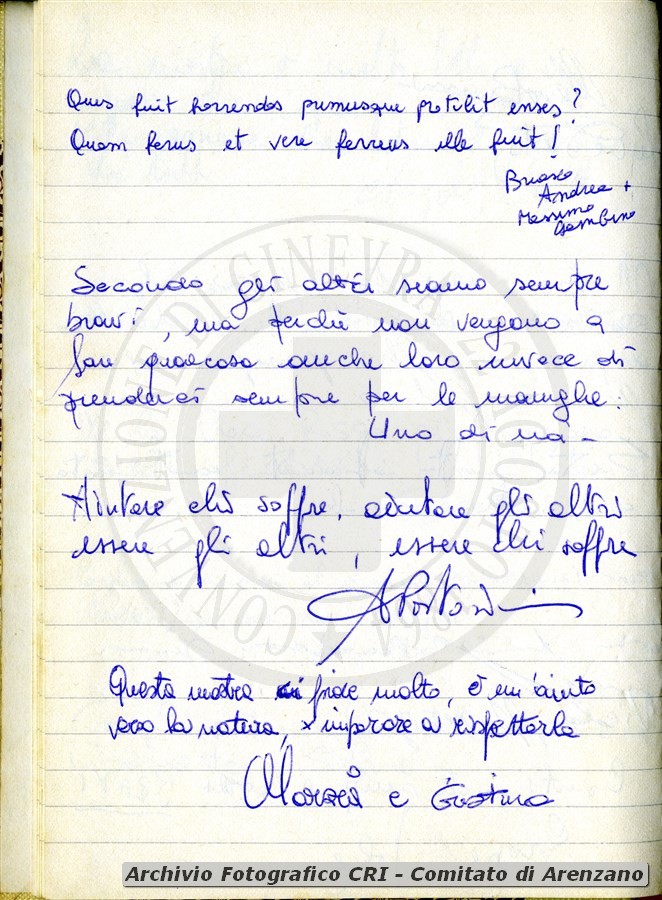 Quis fuit horrendos primusque protulit enses?
Quam ferus et vere ferreus ille fuit!
Andrea +
Massimo
Gambino
Secondo gli altri siamo sempre
bravi, ma perchè non vengono a
fare qualcosa anche loro invece di
prenderci sempre per le maniche.
Uno di noi -
Aiutare chi soffre, aiutare gli altri
essere gli altri, essere chi soffre
Questa mostra ci piace molto, è un aiuto
verso la natura, x imparare a rispettarla
e Cristina
CONVENZIONE DI GINEVRA 22 AGOSTO 1864
Archivio Fotografico CRI - Comitato di Arenzano